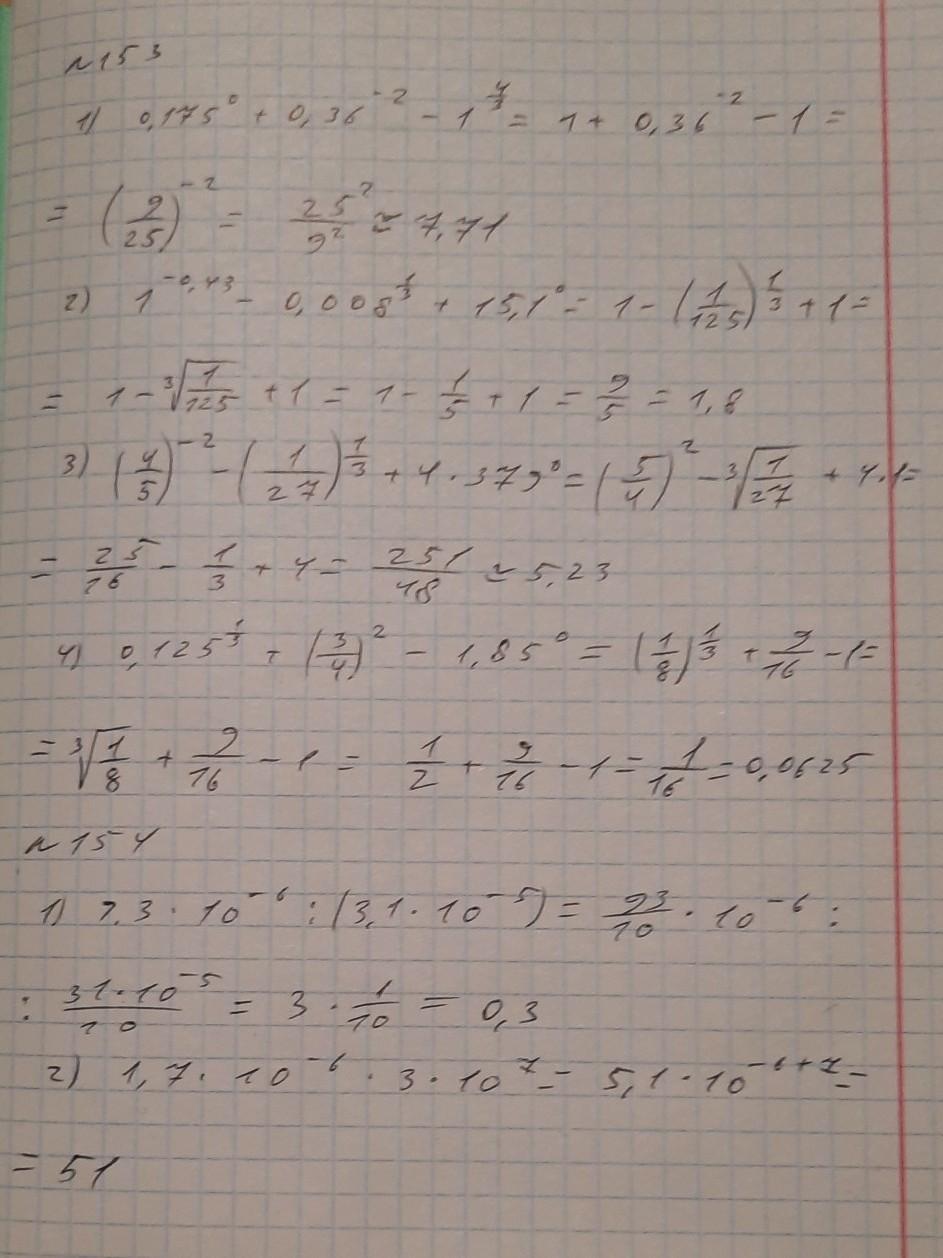 n 153
1) 0,175⁰ + 0,36⁻² − 1^(4/3) = 1 + 0,36⁻² − 1 =
= (9/25)⁻² = 25²/9² ≈ 7,71
2) 1^(−0,43) − 0,008^(1/3) + 15,1⁰ = 1 − (1/125)^(1/3) + 1 =
= 1 − ∛(1/125) + 1 = 1 − 1/5 + 1 = 9/5 = 1,8
3) (4/5)⁻² − (1/27)^(1/3) + 4 · 379⁰ = (5/4)² − ∛(1/27) + 4 · 1 =
= 25/16 − 1/3 + 4 = 251/48 ≈ 5,23
4) 0,125^(1/3) + (3/4)² − 1,85⁰ = (1/8)^(1/3) + 9/16 − 1 =
= ∛(1/8) + 9/16 − 1 = 1/2 + 9/16 − 1 = 1/16 = 0,0625
n 154
1) 9,3 · 10⁻⁶ : (3,1 · 10⁻⁵) = 93/10 · 10⁻⁶ :
: (31 · 10⁻⁵)/10 = 3 · 1/10 = 0,3
2) 1,7 · 10⁻⁶ · 3 · 10⁷ = 5,1 · 10⁻⁶⁺⁷ =
= 51